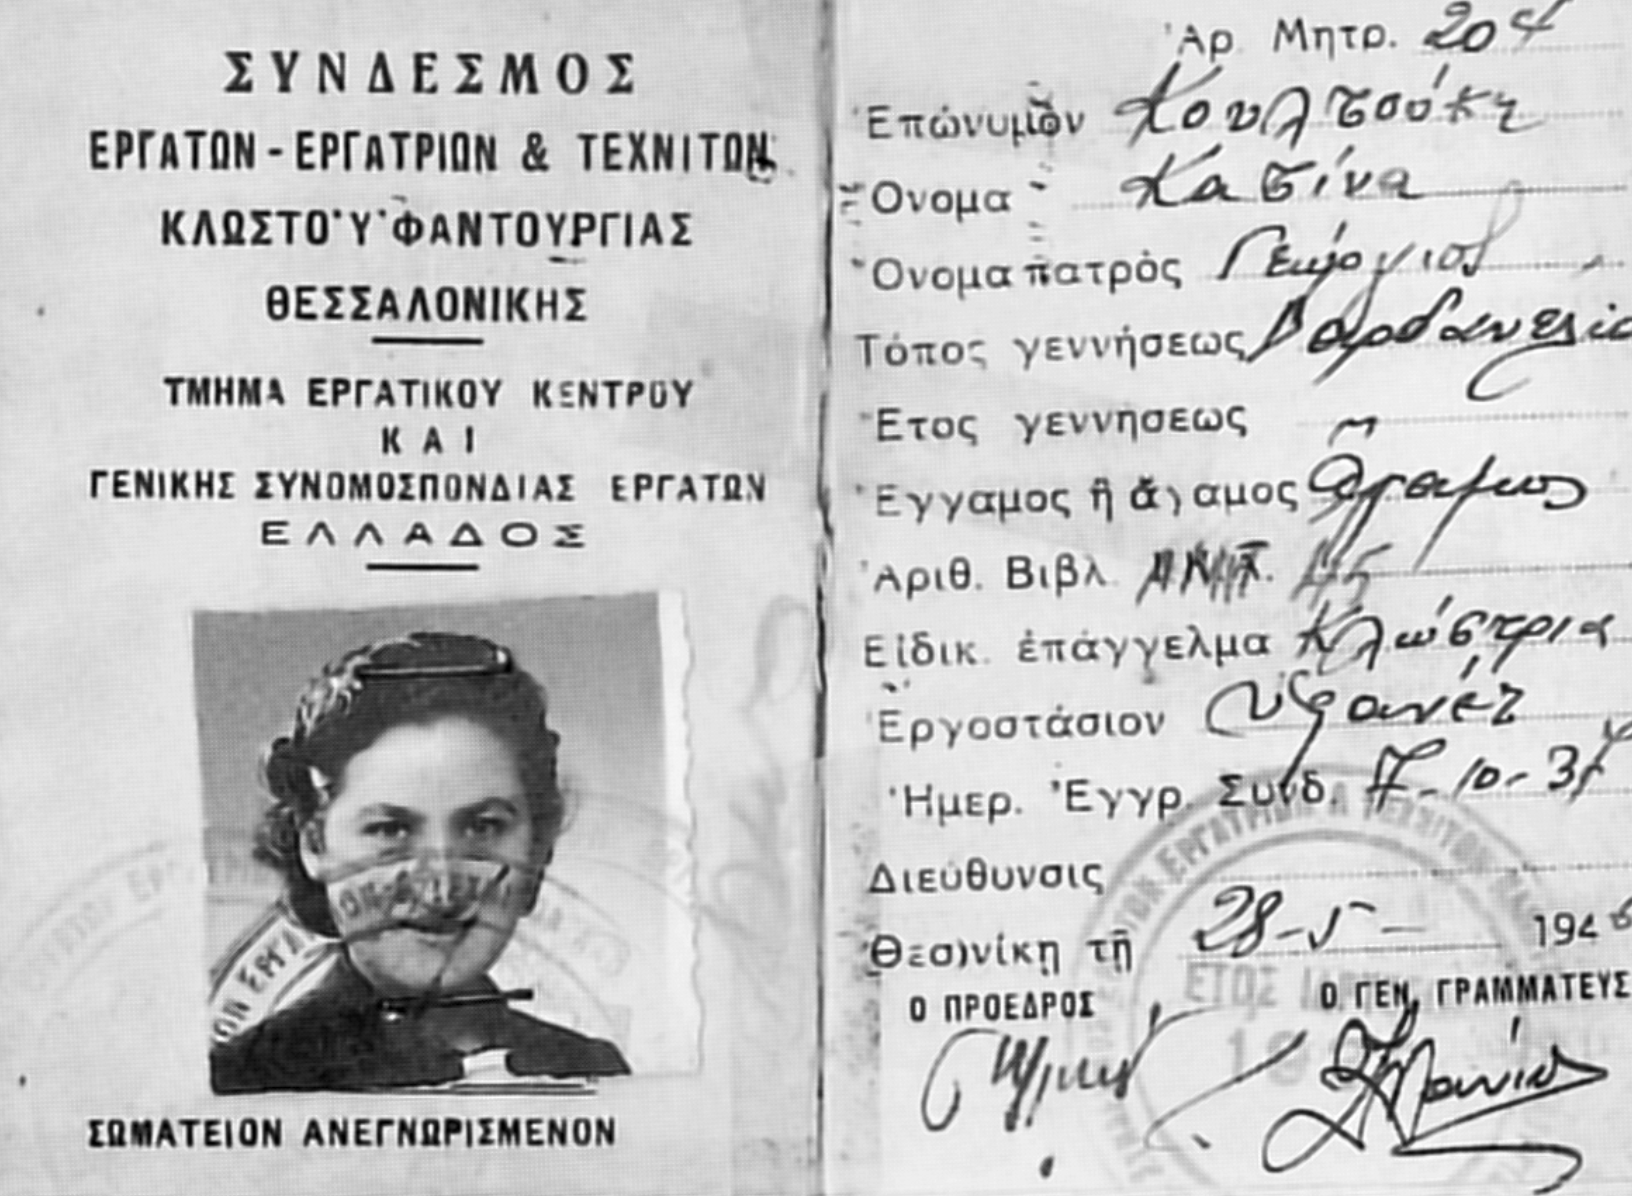 ΣΥΝΔΕΣΜΟΣ
ΕΡΓΑΤΩΝ - ΕΡΓΑΤΡΙΩΝ & ΤΕΧΝΙΤΩΝ
ΚΛΩΣΤΟ·Υ·ΦΑΝΤΟΥΡΓΙΑΣ
ΘΕΣΣΑΛΟΝΙΚΗΣ
ΤΜΗΜΑ ΕΡΓΑΤΙΚΟΥ ΚΕΝΤΡΟΥ
ΚΑΙ
ΓΕΝΙΚΗΣ ΣΥΝΟΜΟΣΠΟΝΔΙΑΣ ΕΡΓΑΤΩΝ
ΕΛΛΑΔΟΣ
ΣΩΜΑΤΕΙΟΝ ΑΝΕΓΝΩΡΙΣΜΕΝΟΝ
Ἀρ. Μητρ. 204
Ἐπώνυμον Κουλτσούκη
Ὄνομα Κατίνα
Ὄνομα πατρὸς Γεώργιος
Τόπος γεννήσεως
Ἔτος γεννήσεως
Ἔγγαμος ἢ ἄγαμος
Ἀριθ. Βιβλ.
Εἰδικ. ἐπάγγελμα Κλώστρια
Ἐργοστάσιον Υφανέτ
Ἡμερ. Ἐγγρ. Συνδ. 7-10-37
Διεύθυνσις
Θεσ)νίκη τῇ 28-5- 194
Ο ΠΡΟΕΔΡΟΣ Ο ΓΕΝ. ΓΡΑΜΜΑΤΕΥΣ